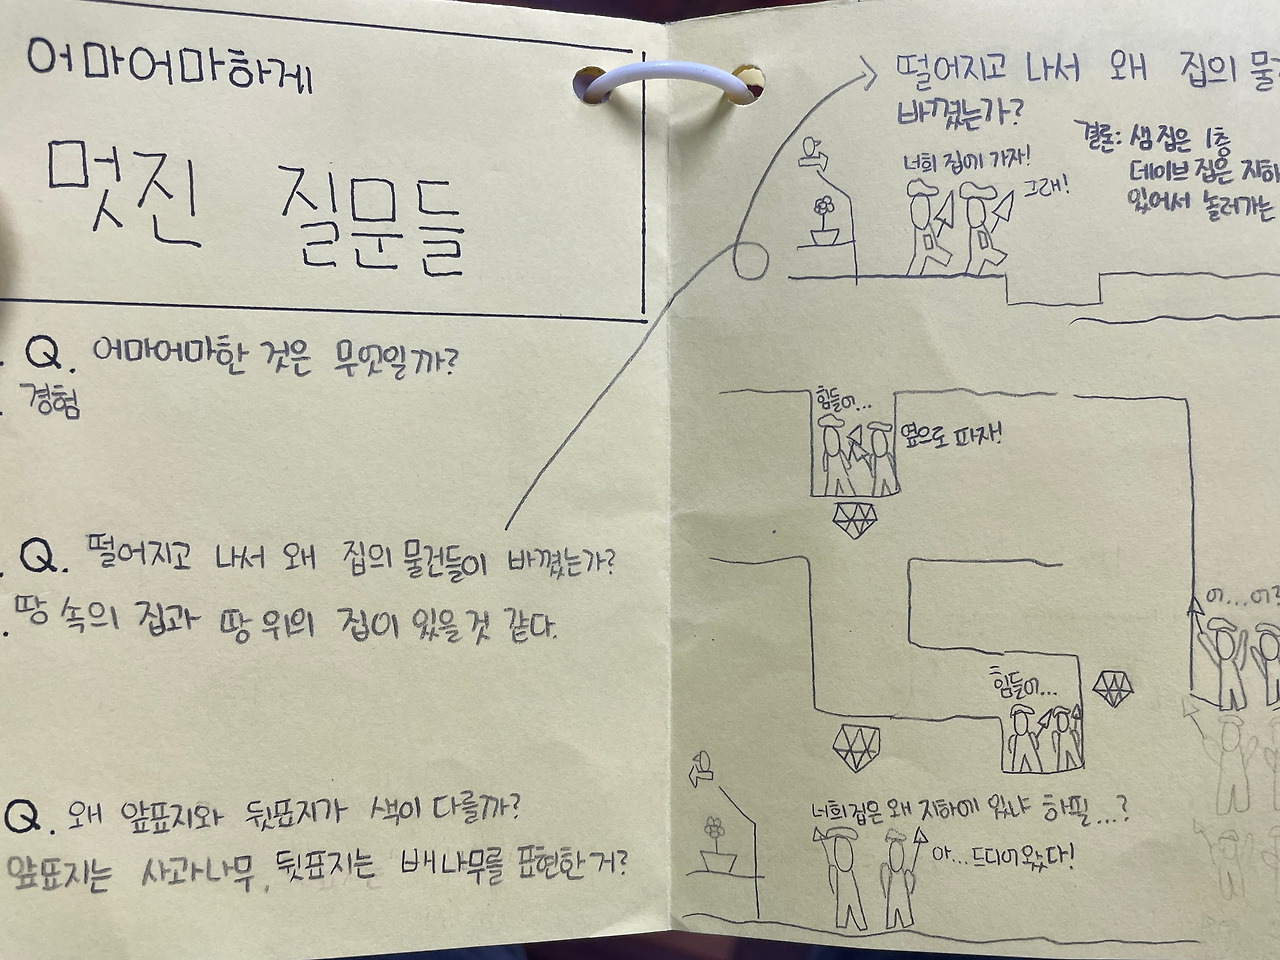 어마어마하게
멋진 질문들
Q. 어마어마한 것은 무엇일까?
경험
Q. 떨어지고 나서 왜 집의 물건들이 바꼈는가?
땅 속의 집과 땅 위의 집이 있을것 같다.
Q. 왜 앞표지와 뒷표지가 색이 다를까?
앞표지는 사과나무, 뒷표지는 배나무를 표현한거?
떨어지고 나서 왜 집의
바꼈는가?
결론: 샘집은 1층
데이브집은 지하
있어서 놀러가는
너희 집에 가자!
그래!
힘들어...
옆으로 파자!
힘들어...
어...어
너희집은 왜 지하에 있냐 하필...?
아...드디어왔다!